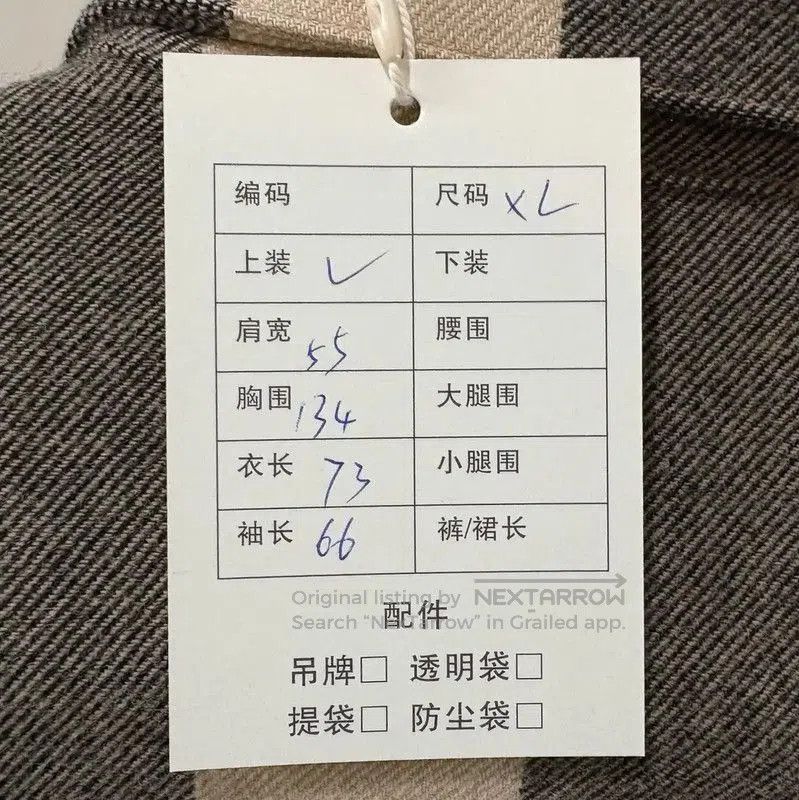 编码 尺码 XL
上装 ✓ 下装
肩宽 55 腰围
胸围 134 大腿围
衣长 73 小腿围
袖长 66 裤/裙长
Original listing by NEXTARROW
配件
Search “NextArrow” in Grailed app.
吊牌□ 透明袋□
提袋□ 防尘袋□